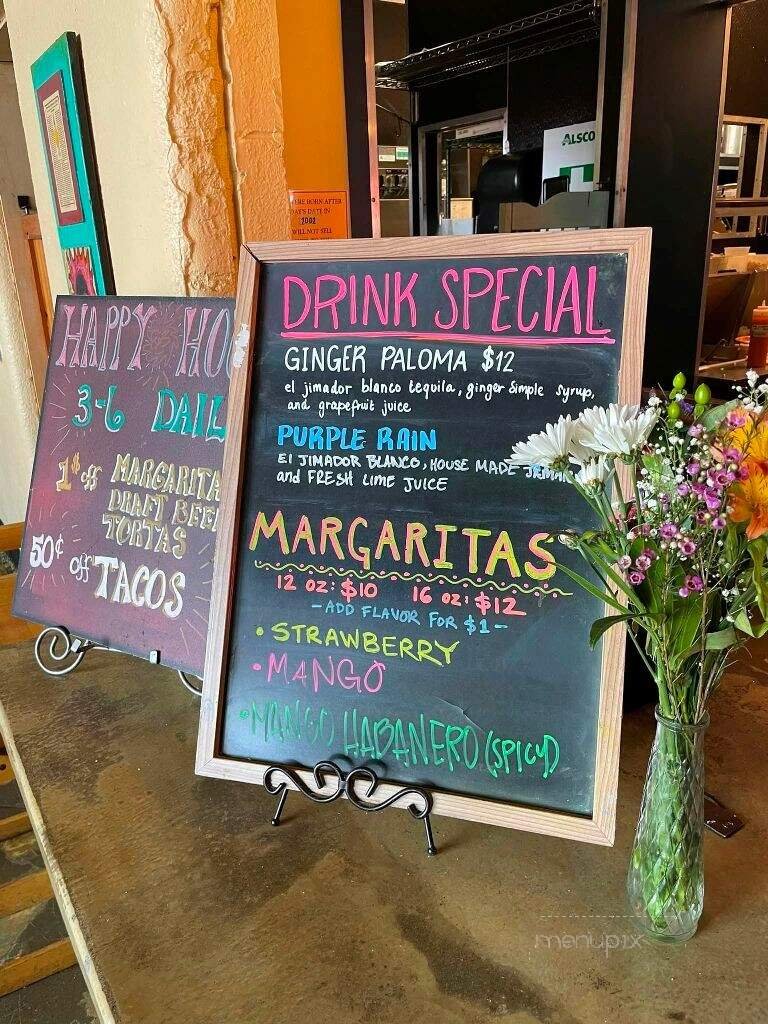 HAPPY HO
3-6 DAIL
1$ off MARGARITA
DRAFT BEE
TORTAS
50¢ off TACOS
ERE BORN AFTER
DAY'S DATE IN
2002
WILL NOT SELL
ALSCO
DRINK SPECIAL
GINGER PALOMA $12
el jimador blanco tequila, ginger simple syrup,
and grapefruit juice
PURPLE RAIN
El JIMADOR BLANCO, HOUSE MADE
and FRESH LIME JUICE
MARGARITAS
12 oz: $10 16 oz: $12
-ADD FLAVOR FOR $1-
• STRAWBERRY
• MANGO
• MANGO HABANERO (SPICY)
menupix